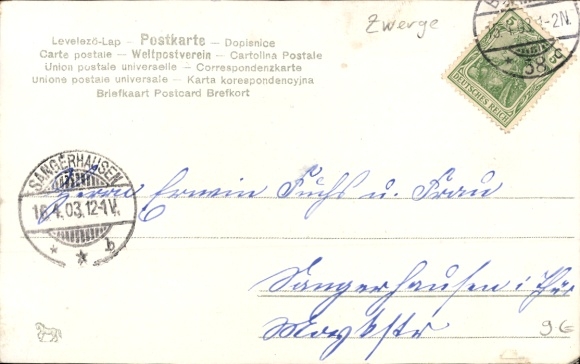 Zwerge
Levelező-Lap – Postkarte – Dopisnice
Carte postale – Weltpostverein – Cartolina Postale
Union postale universelle – Correspondenzkarte
Unione postale universale – Karta korespondencyjna
Briefkaart Postcard Brefkort
1-2N.
DEUTSCHES REICH
58
SANGERHAUSEN
16.4.03.12-1V.
* * b
Herrn Erwin Fuchs u. Frau
Sangerhausen i/Thür
9€